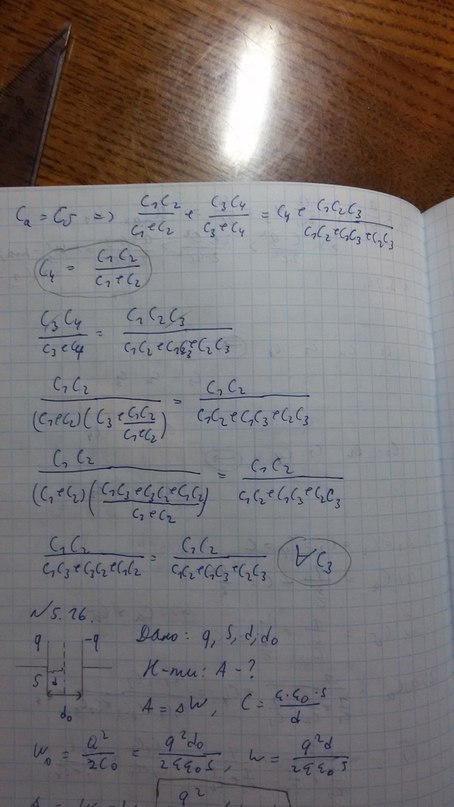 Cа = C5 => C1C2/(C1+C2) + C3C4/(C3+C4) = C4 + C1C2C3/(C1C2+C1C3+C2C3)
C4 = C1C2/(C1+C2)
C3C4/(C3+C4) = C1C2C3/(C1C2+C1C3+C2C3)
C1C2/((C1+C2)(C3+C1C2/(C1+C2))) = C1C2/(C1C2+C1C3+C2C3)
C1C2/((C1+C2)((C1C3+C3C2+C1C2)/(C1+C2))) = C1C2/(C1C2+C1C3+C2C3)
C1C2/(C1C3+C3C2+C1C2) = C1C2/(C1C2+C1C3+C2C3) ∀C3
№5.26.
q -q
S d
d0
Дано: q, S, d, d0
Н-ти: A - ?
A = ΔW, C = ε·ε0·S/d
W0 = Q²/2C0 = q²d0/2εε0S, W = q²d/2εε0S
q²